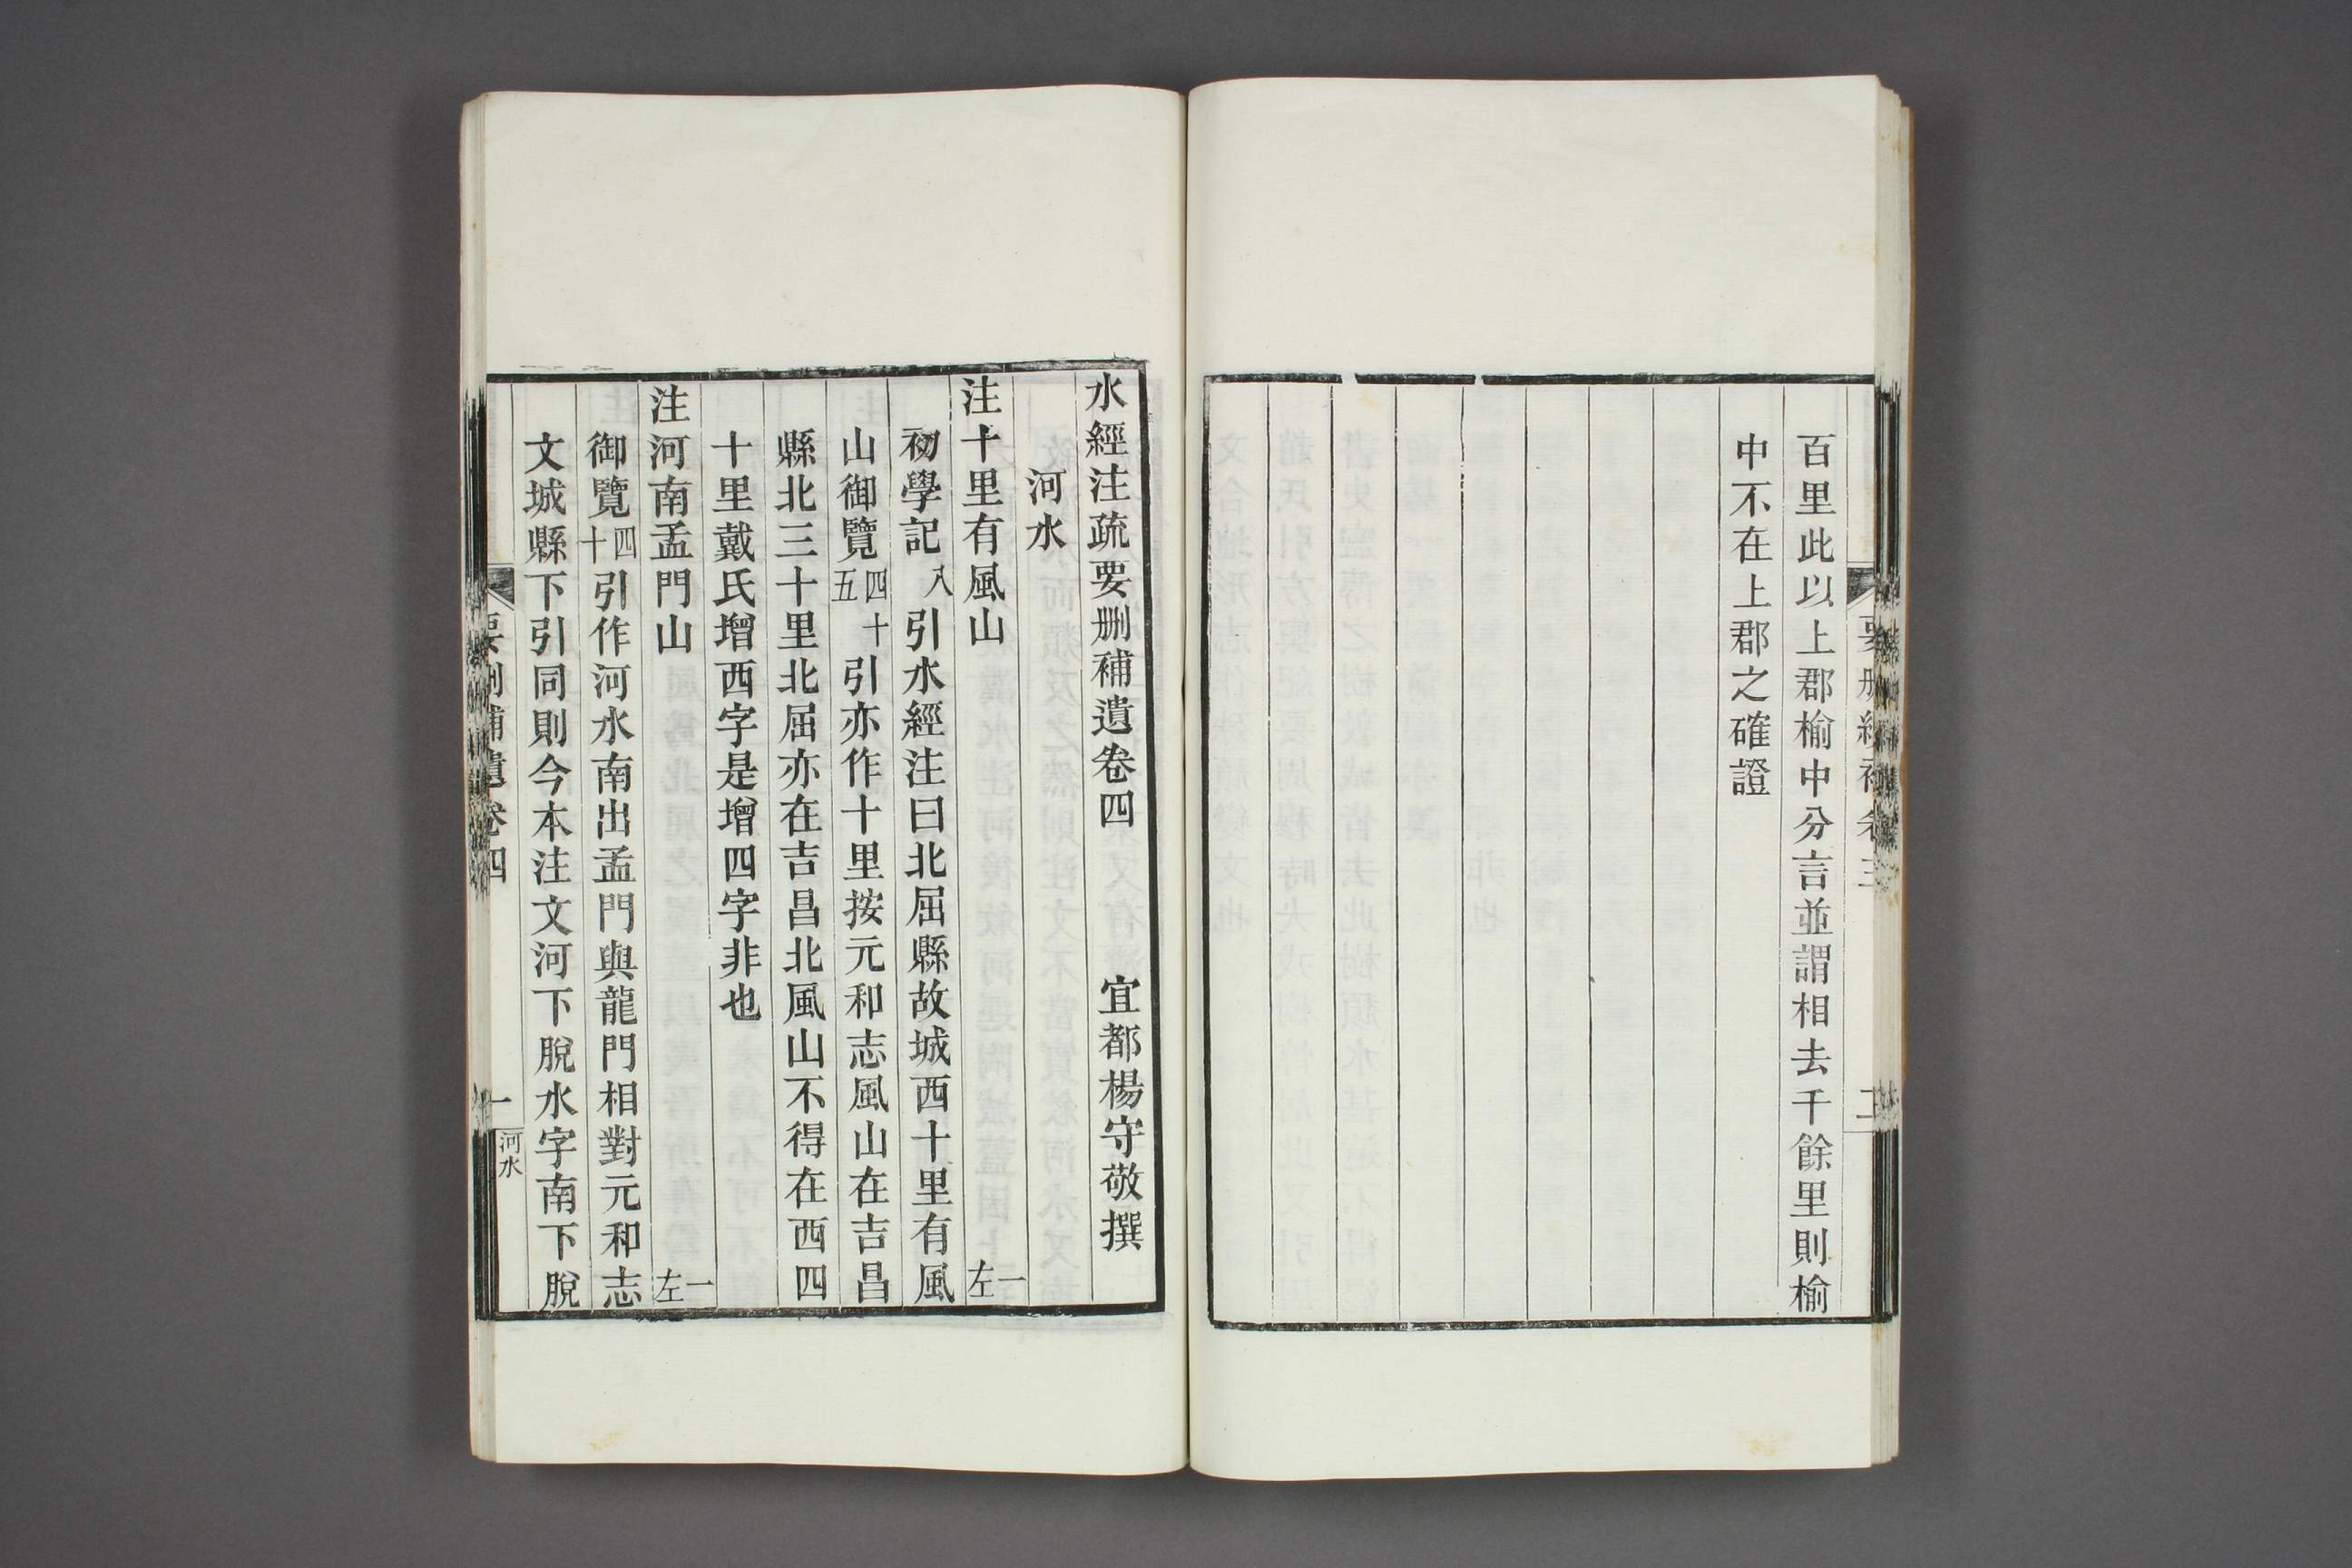 百里此以上郡榆中分言並謂相去千餘里則榆
中不在上郡之確證
水經注疏要刪補遺卷四　　　宜都楊守敬撰
河水
注十里有風山　一左
初學記八引水經注曰北屈縣故城西十里有風
山御覽四十五引亦作十里按元和志風山在吉昌
縣北三十里北屈亦在吉昌北風山不得在西四
十里戴氏增西字是增四字非也
注河南孟門山　一左
御覽四十引作河水南出孟門與龍門相對元和志
文城縣下引同則今本注文河下脫水字南下脫
要刪補遺卷四　一　河水